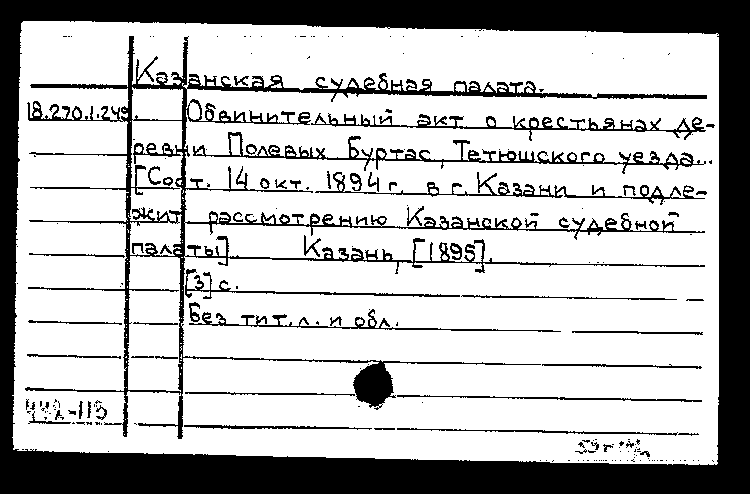 Казанская судебная палата.
18.270.1.249. Обвинительный акт о крестьянах де-
ревни Полевых Буртас, Тетюшского уезда...
[Сост. 14 окт. 1894 г. в г. Казани и подле-
жит рассмотрению Казанской судебной
палаты]. Казань, [1895].
[3] с.
Без тит. л. и обл.
442-113